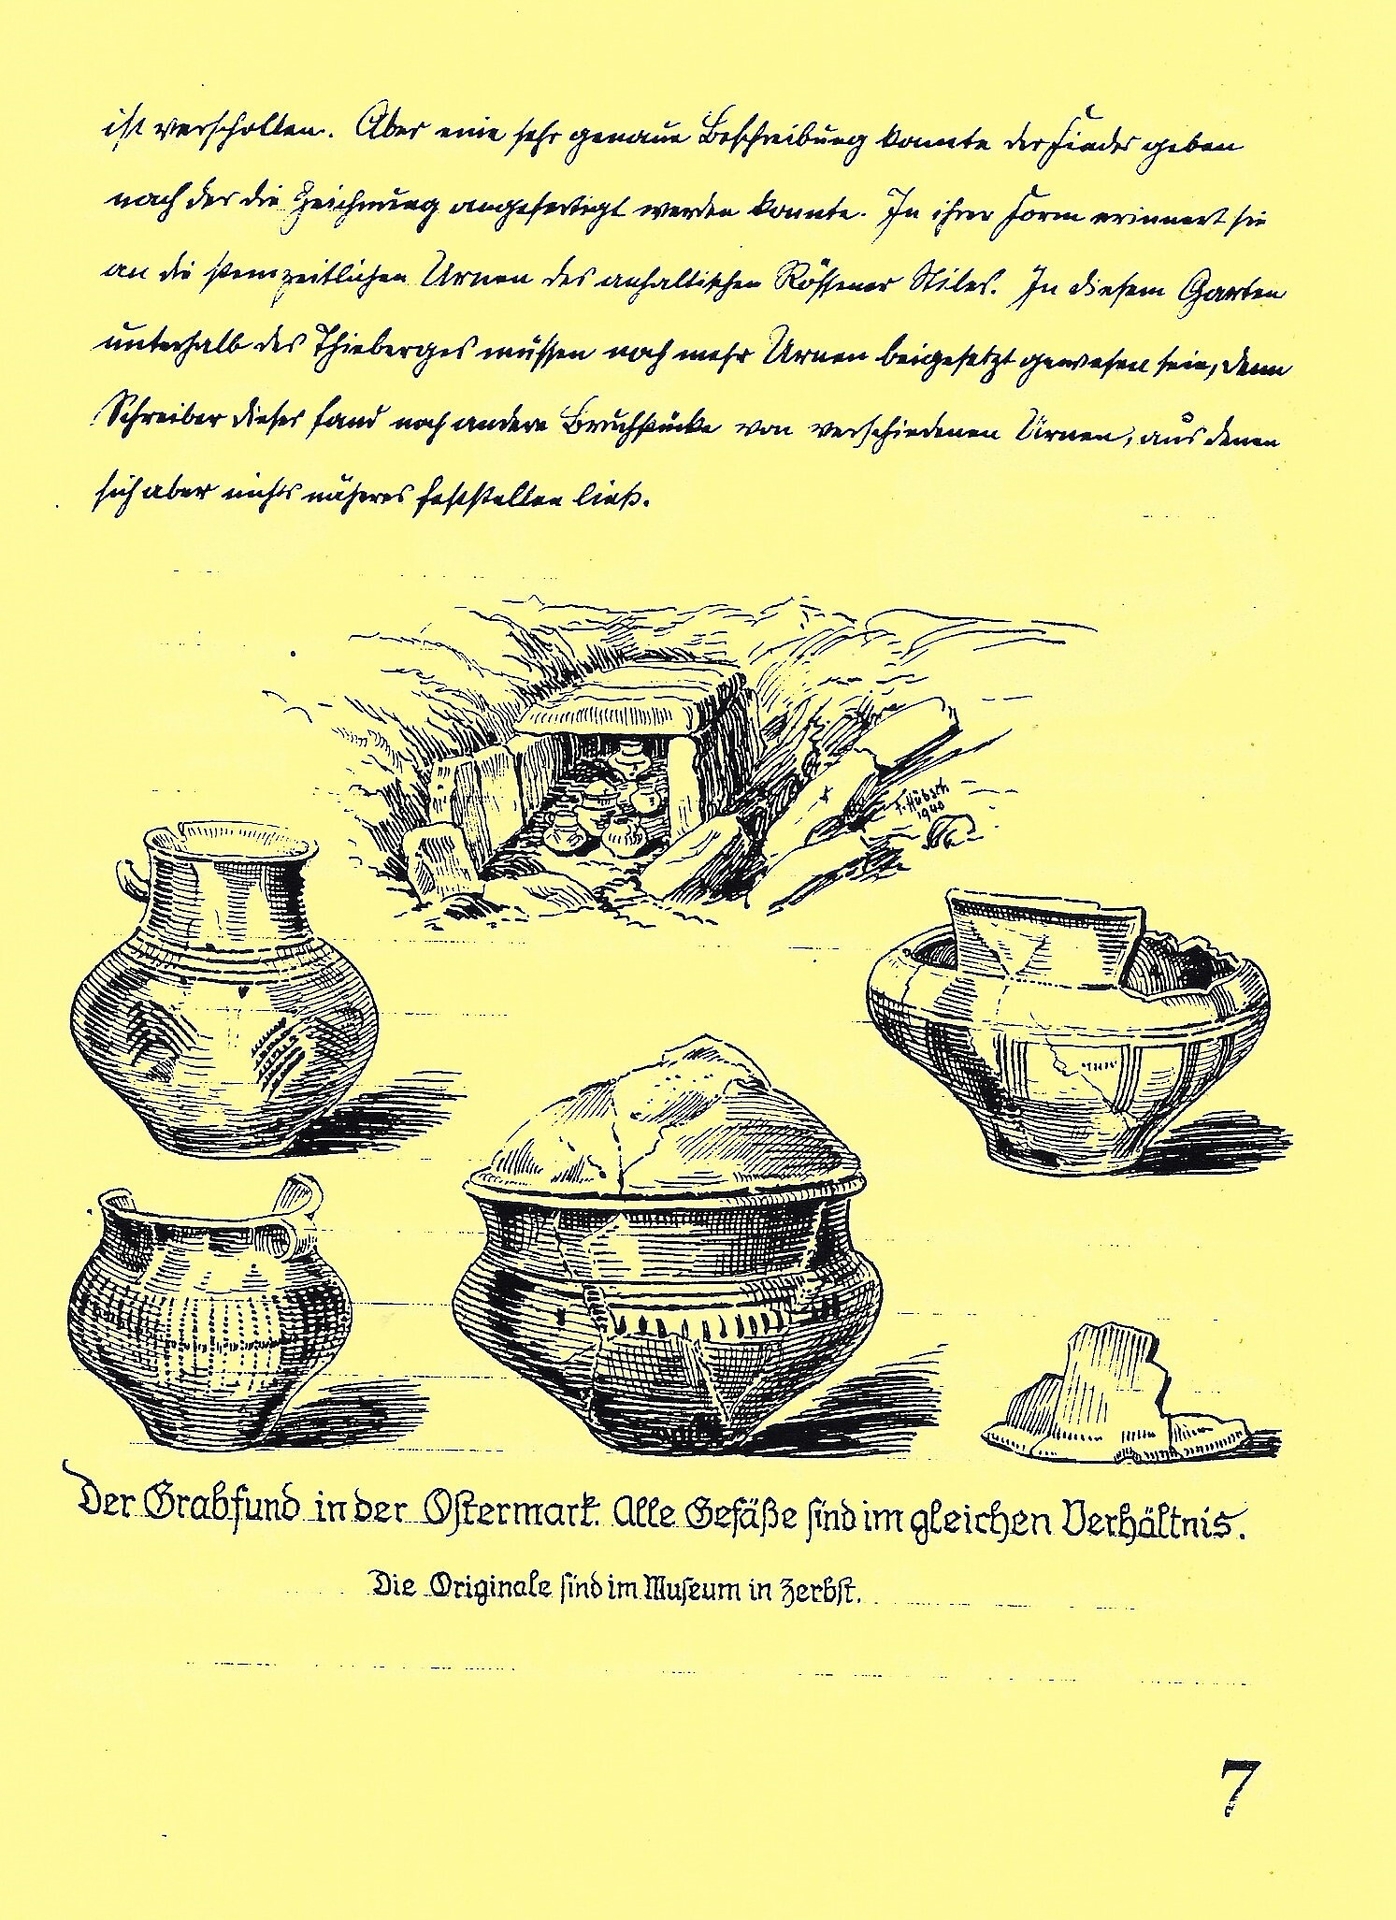 ist verschollen. Aber eine sehr genaue Beschreibung konnte der Finder geben
nach der die Zeichnung angefertigt werden konnte. In ihrer Form erinnert sie
an die steinzeitlichen Urnen des anhaltischen Rössener Stiles. In diesem Garten
unterhalb des Thieberges müssen noch mehr Urnen beigesetzt gewesen sein, denn
Schreiber dieses fand noch andere Bruchstücke von verschiedenen Urnen, aus denen
sich aber nichts näheres feststellen ließ.
F. Hübsch
1940
Der Grabfund in der Ostermark. Alle Gefäße sind im gleichen Verhältnis.
Die Originale sind im Museum in Zerbst.
7